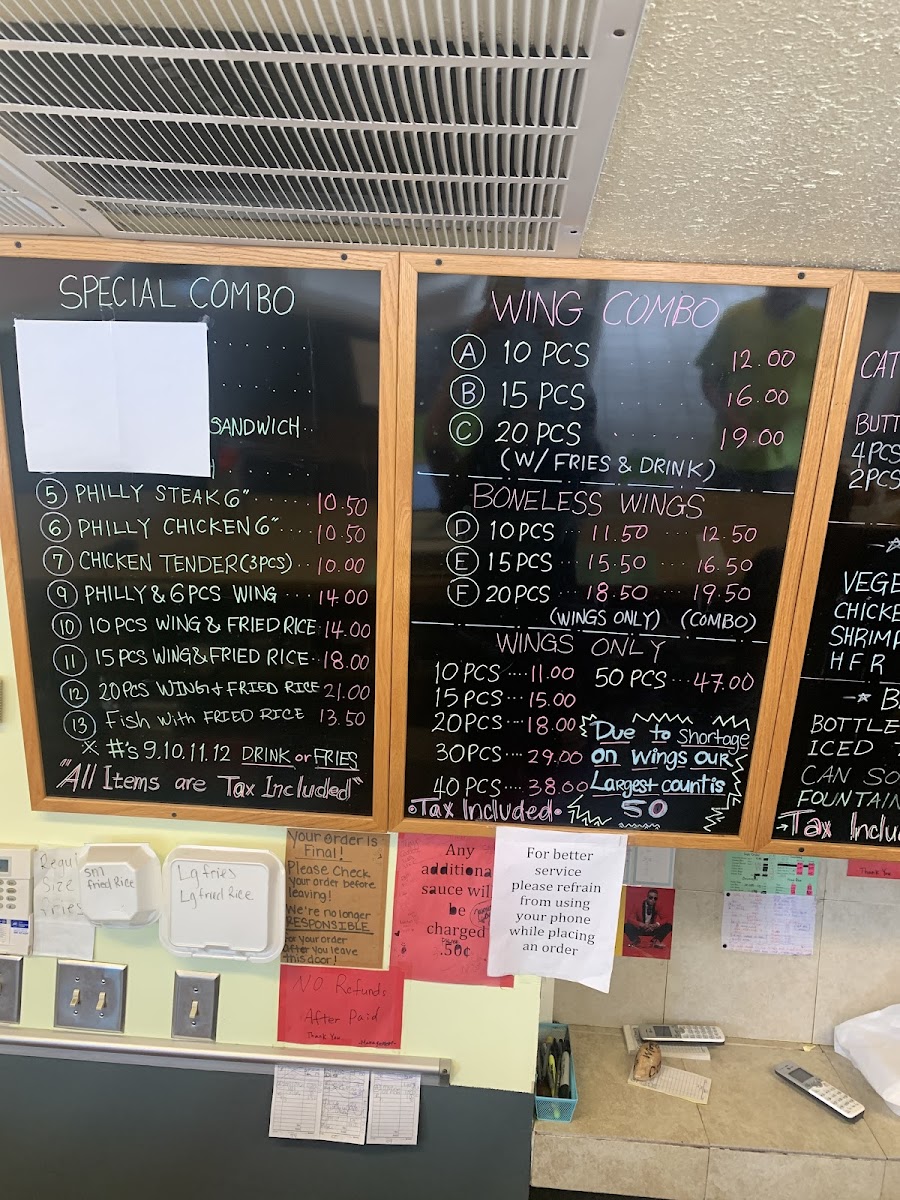 SPECIAL COMBO
SANDWICH
5 PHILLY STEAK 6" 10.50
6 PHILLY CHICKEN 6" 10.50
7 CHICKEN TENDER (3PCS) 10.00
9 PHILLY & 6 PCS WING 14.00
10 10 PCS WING & FRIED RICE 14.00
11 15 PCS WING & FRIED RICE 18.00
12 20PCS WING & FRIED RICE 21.00
13 Fish with FRIED RICE 13.50
* #'s 9.10.11.12 DRINK or FRIES
"All Items are Tax Included"
WING COMBO
A 10 PCS 12.00
B 15 PCS 16.00
C 20 PCS 19.00
(W/ FRIES & DRINK)
BONELESS WINGS
D 10 PCS 11.50 12.50
E 15 PCS 15.50 16.50
F 20 PCS 18.50 19.50
(WINGS ONLY) (COMBO)
WINGS ONLY
10 PCS .... 11.00
15 PCS ... 15.00
20 PCS ... 18.00
30 PCS .... 29.00
40 PCS .... 38.00
50 PCS ... 47.00
Due to Shortage
on Wings our
Largest count is
50
Tax Included
CAT
BUTT
4 PCS
2 PCS
VEGE
CHICKE
SHRIMP
H F R
BOTTLE
ICED T
CAN SO
FOUNTAIN
Tax Inclu
Size
Fries
Sml
Fried Rice
Lg fries
Lg fried Rice
Your Order is
Final!
Please Check
your order before
leaving!
We're no longer
RESPONSIBLE
for your order
after you leave
this door!
Any
additiona
sauce wil
be
charged
.50¢
For better
service
please refrain
from using
your phone
while placing
an order
No Refunds
After Paid
Thank You
Thank You